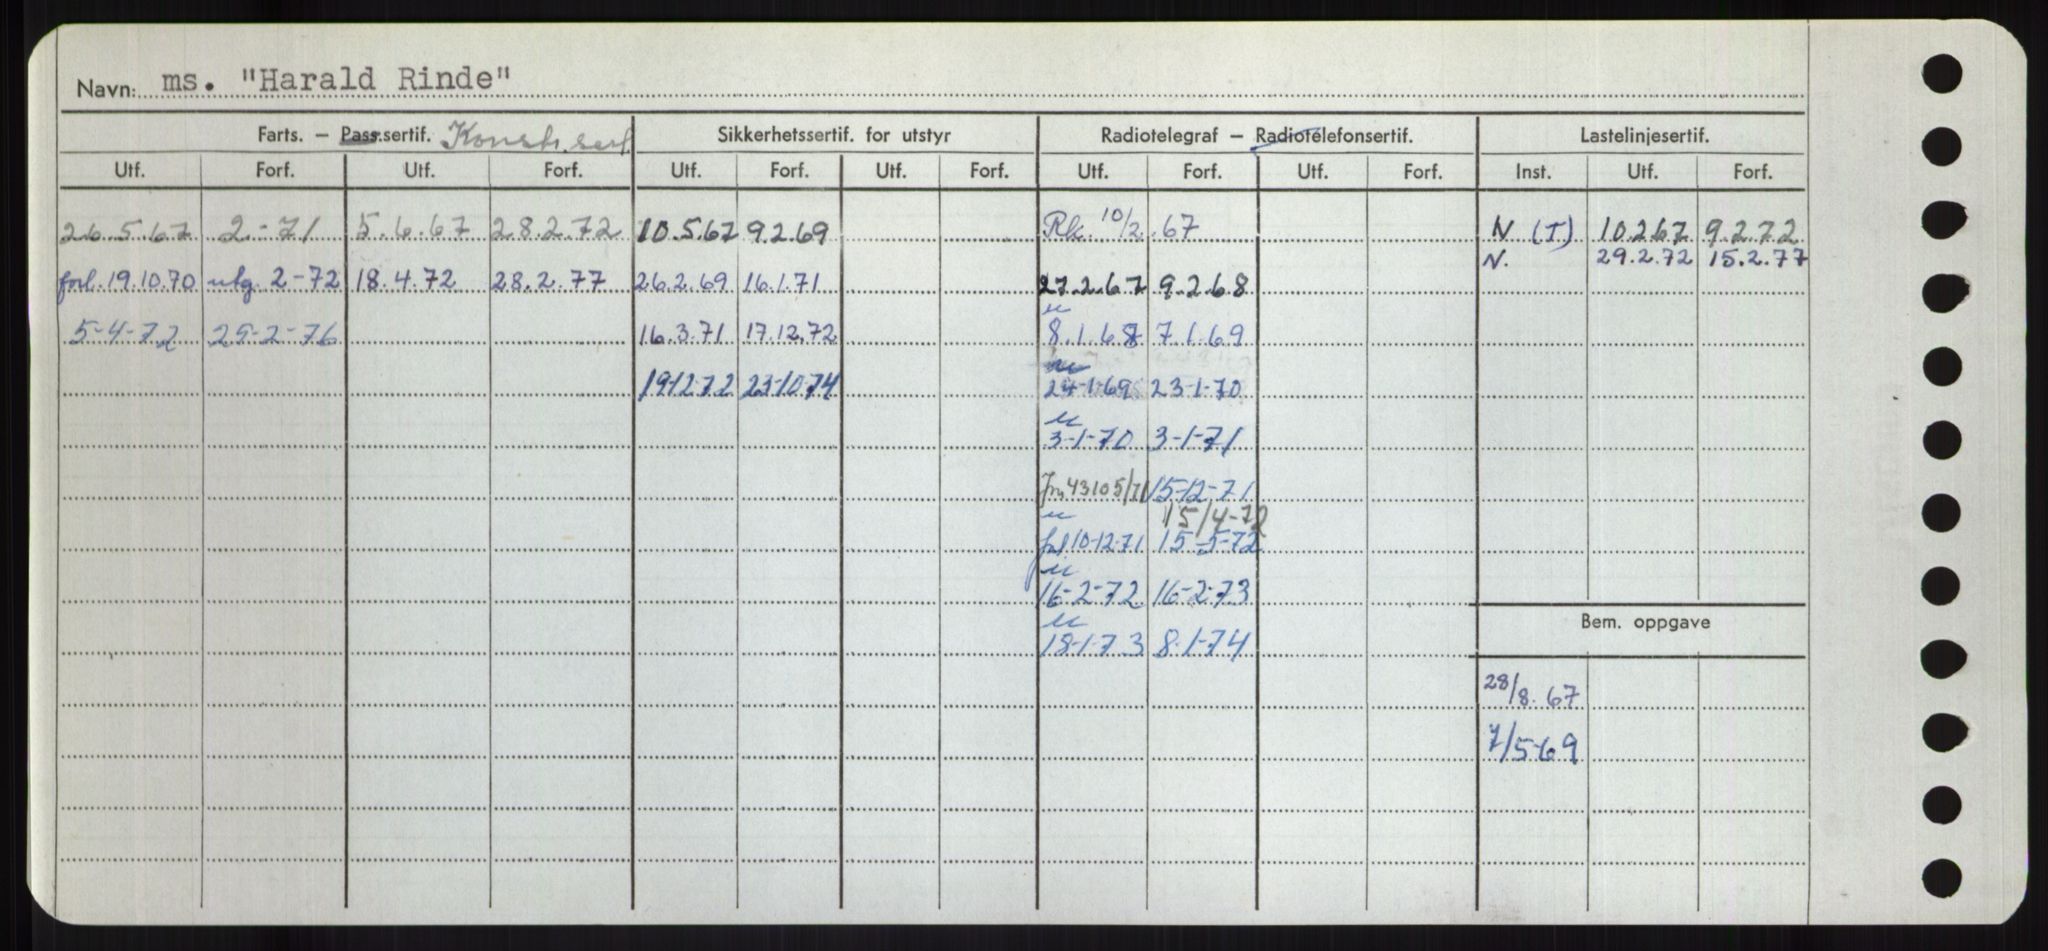 Navn: ms. "Harald Rinde"
Farts. – Pass.sertif. Konstr. sert. Sikkerhetssertif. for utstyr Radiotelegraf – Radiotelefonsertif. Lastelinjesertif.
Utf. Forf. Utf. Forf. Utf. Forf. Utf. Forf. Utf. Forf. Utf. Forf. Inst. Utf. Forf.
26.5.67 2.-71 5.6.67 28.2.72 10.5.67 9.2.69 Rk. 10/2.67 N (T) 10.2.67 9.2.72
N. 29.2.72 15.2.77
forl. 19.10.70 utg. 2-72 18.4.72 28.2.77 26.2.69 16.1.71 27.2.67 9.2.68
5-4-72 29-2-76 16.3.71 17.12.72 8.1.68 7.1.69
19-12-72 23-10-74 24-1-69 23-1-70
3-1-70 3-1-71
43105/71 15-12-71
15/4-72
10-12-71 15-5-72
16-2-72 16-2-73
Bem. oppgave
18-1-73 8-1-74
28/8.67
7/5-69